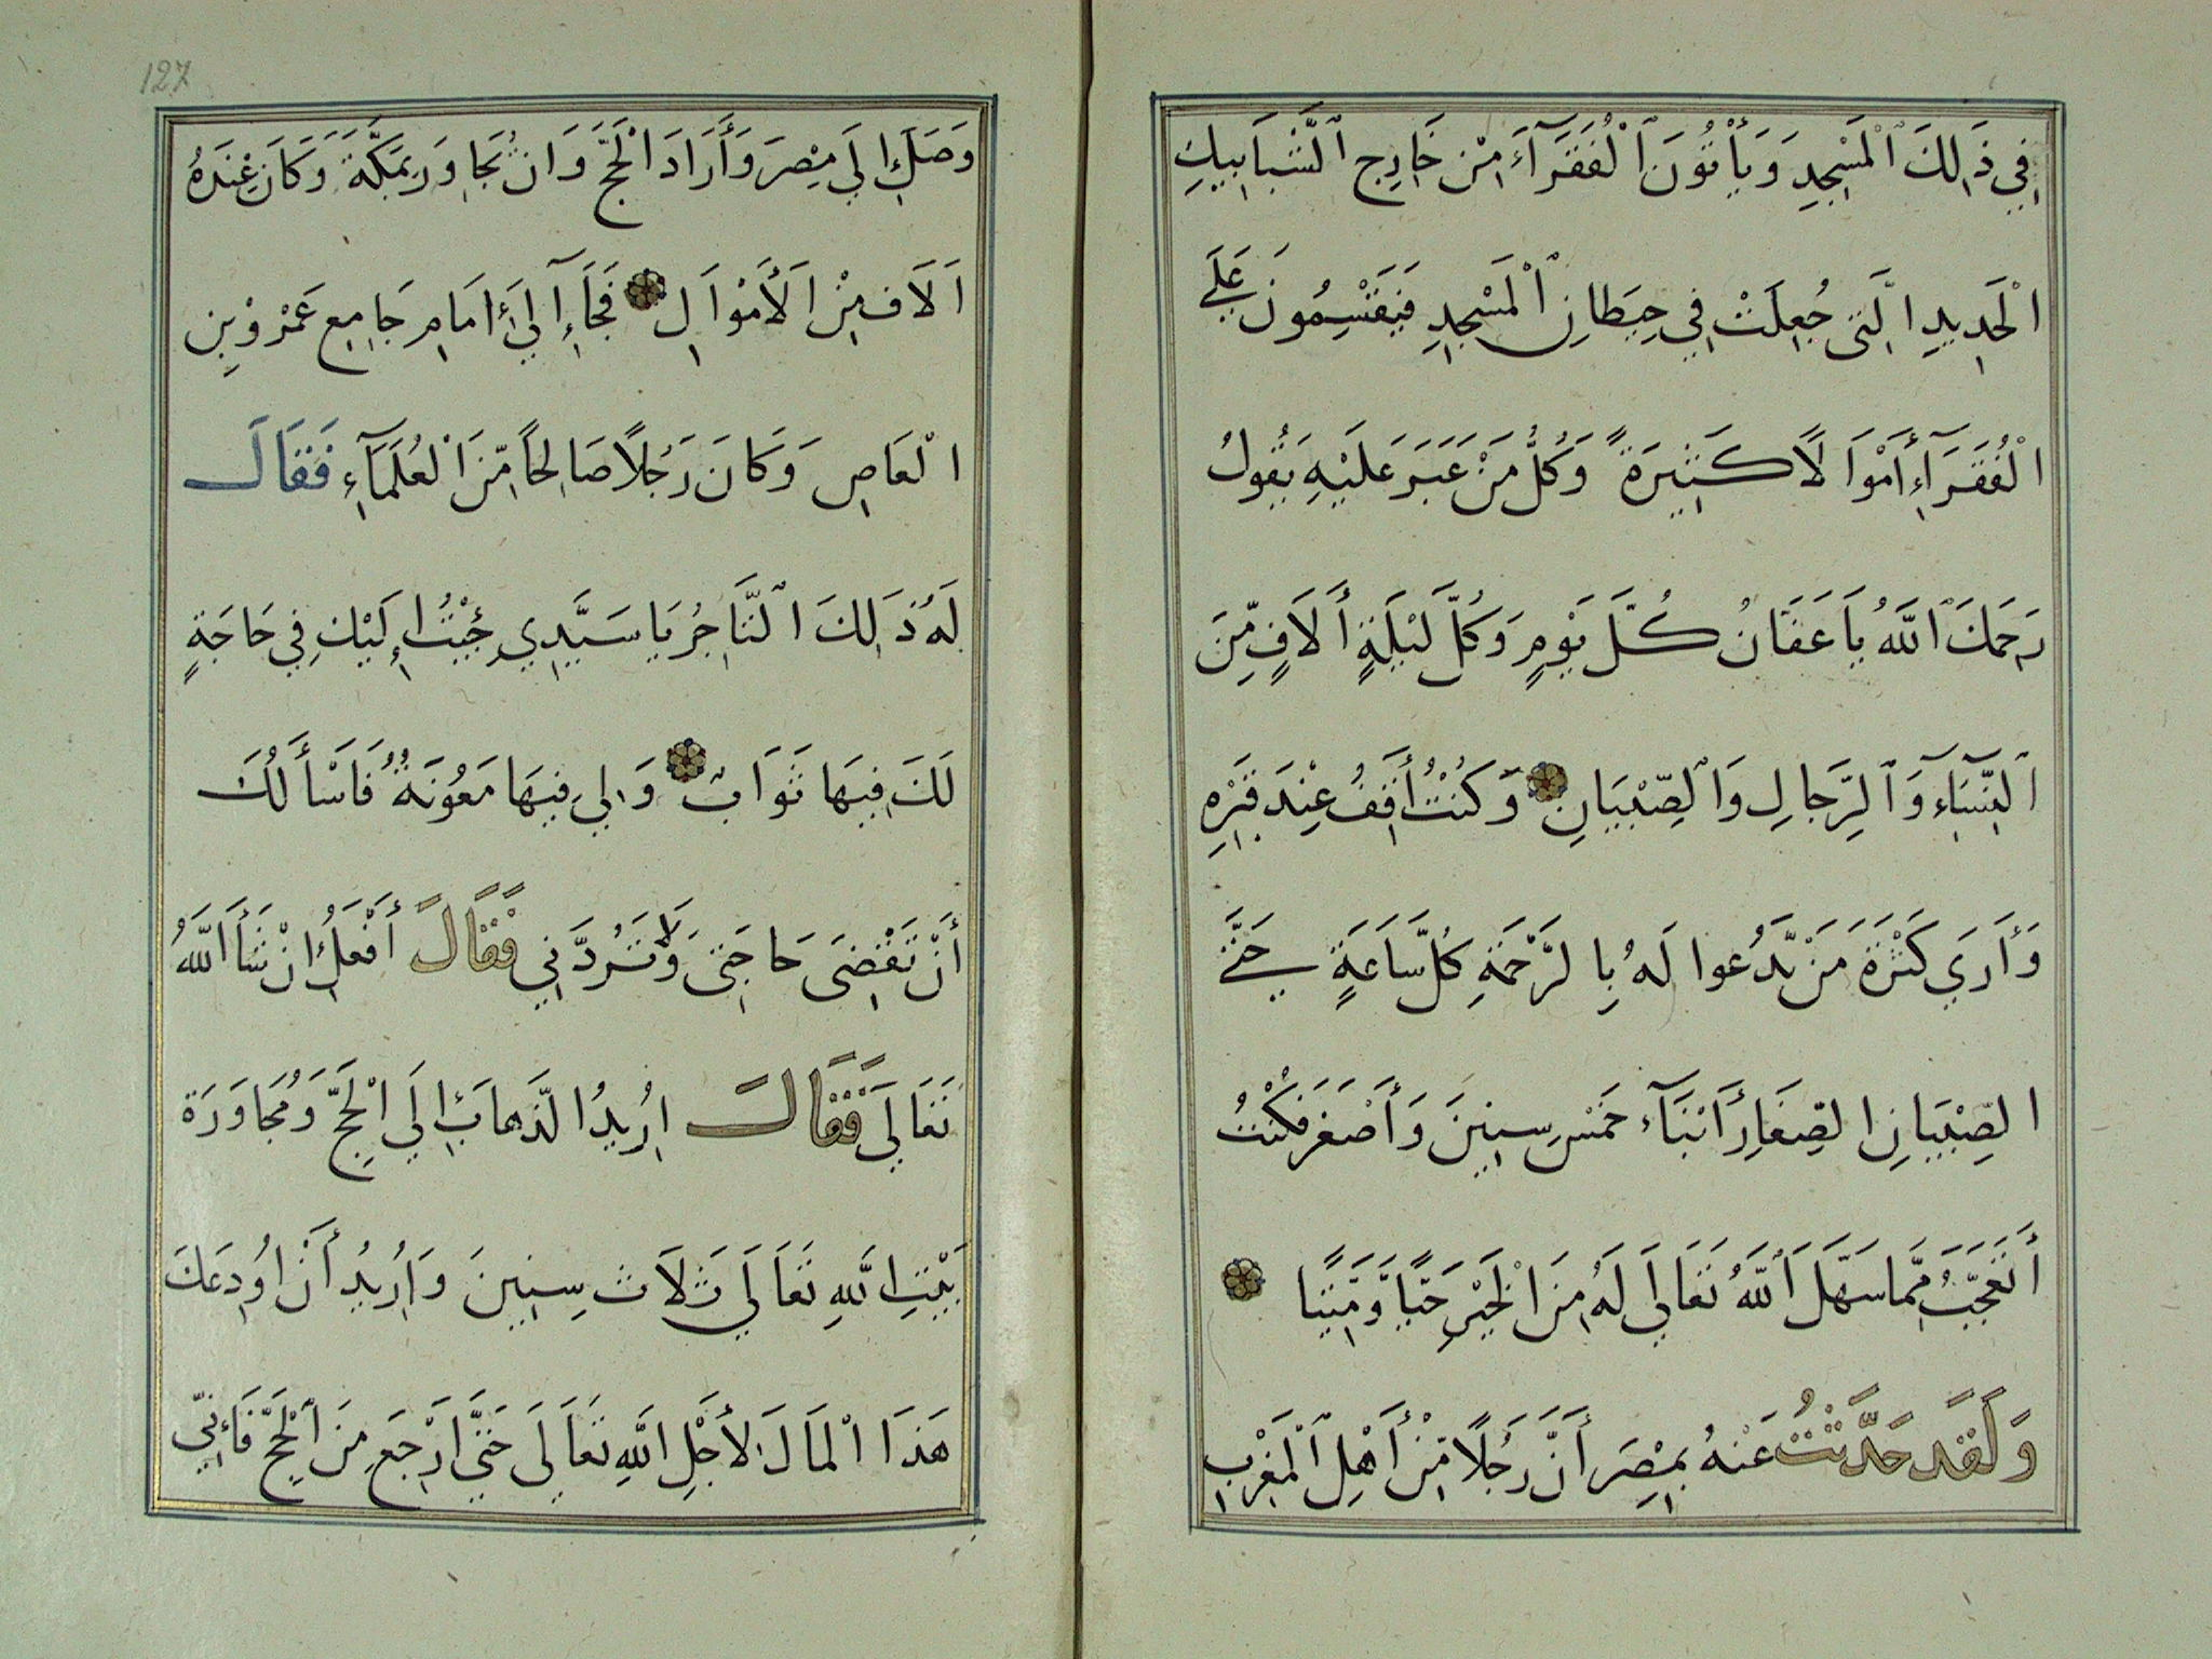 فِي ذَالِكَ ٱلْمَسْجِدِ وَيَأْتُونَ ٱلْفُقَرَآءَ مِنْ خَارِجِ ٱلشَّبَابِيكِ
الْحَدِيدِ الَّتِى جُعِلَتْ فِي حِيطَانِ ٱلْمَسْجِدِ فَيَقْسِمُونَ عَلَي
الْفُقَرَآءِ أَمْوَالًا كَثِيرَةً وَكُلُّ مَنْ عَبَرَ عَلَيْهِ يَقُولُ
رَحِمَكَ ٱللَّهُ يَا عَفَانُ كُلَّ يَوْمٍ وَكُلَّ لَيْلَةٍ أَلَافٍ مِّنَ
ٱلنِّسَآءِ وَٱلرِّجَالِ وَٱلصِّبْيَانِ وَكُنْتُ أَقِفُ عِنْدَ قَبْرِهِ
وَأَرَي كَثْرَةَ مَنْ يَّدْعُوا لَهُ بِالرَّحْمَةِ كُلَّ سَاعَةٍ حَتَّي
الصِّبْيَانِ الصِّغَارِ أَبْنَآءِ خَمْسِ سِنِينَ وَأَصْغَرَ فَكُنْتُ
أَتَعَجَّبُ مِمَّا سَهَّلَ ٱللَّهُ تَعَالَي لَهُ مِنَ الْخَيْرِ حَيًّا وَّمَيِّتًا
وَلَقَدْ حَدَّثْتُ عَنْهُ بِمِصْرَ أَنَّ رَجُلًا مِّنْ أَهْلِ ٱلْمَغْرِبِ
127
وَصَلَ إِلَي مِصْرَ وَأَرَادَ الْحَجَّ وَانْ يُجَاوِرَ بِمَكَّةَ وَكَانَ عِنْدَهُ
اَلَاف مِنَ الْأَمْوَالِ فَجَآءَ إِلَيٰ إِمَامِ جَامِعِ عَمْرِوْ بِن
الْعَاصِ وَكَانَ رَجُلًا صَالِحًا مِّنَ الْعُلَمَآءِ فَقَالَ
لَهُ ذَالِكَ الْتَّاجِرُ يَا سَيِّدِي جِئْتُ إِلَيْكَ فِي حَاجَةٍ
لَكَ فِيهَا ثَوَابٌ وَلِي فِيهَا مَعُونَةٌ فَاَسْأَلُكَ
أَنْ تَقْضِىَ حَاجَتِى وَلَا تَرُدَّنِي فَقَالَ أَفْعَلُ إِنْ شَأَ اللَّهُ
تَعَالَي فَقَالَ اُرِيدُ الذَّهَابَ إِلَي الْحَجِّ وَمُجَاوَرَة
بَيْتِ اللَّهِ تَعَالَي ثَلَاثَ سِنِينَ وَاُرِيدُ أَنْ اُودِعَكَ
هَذَا الْمَالَ لِأَجْلِ اللَّهِ تَعَالَي حَتَّي اَرْجَعَ مِنَ ٱلْحَجِّ فَإِنِّي